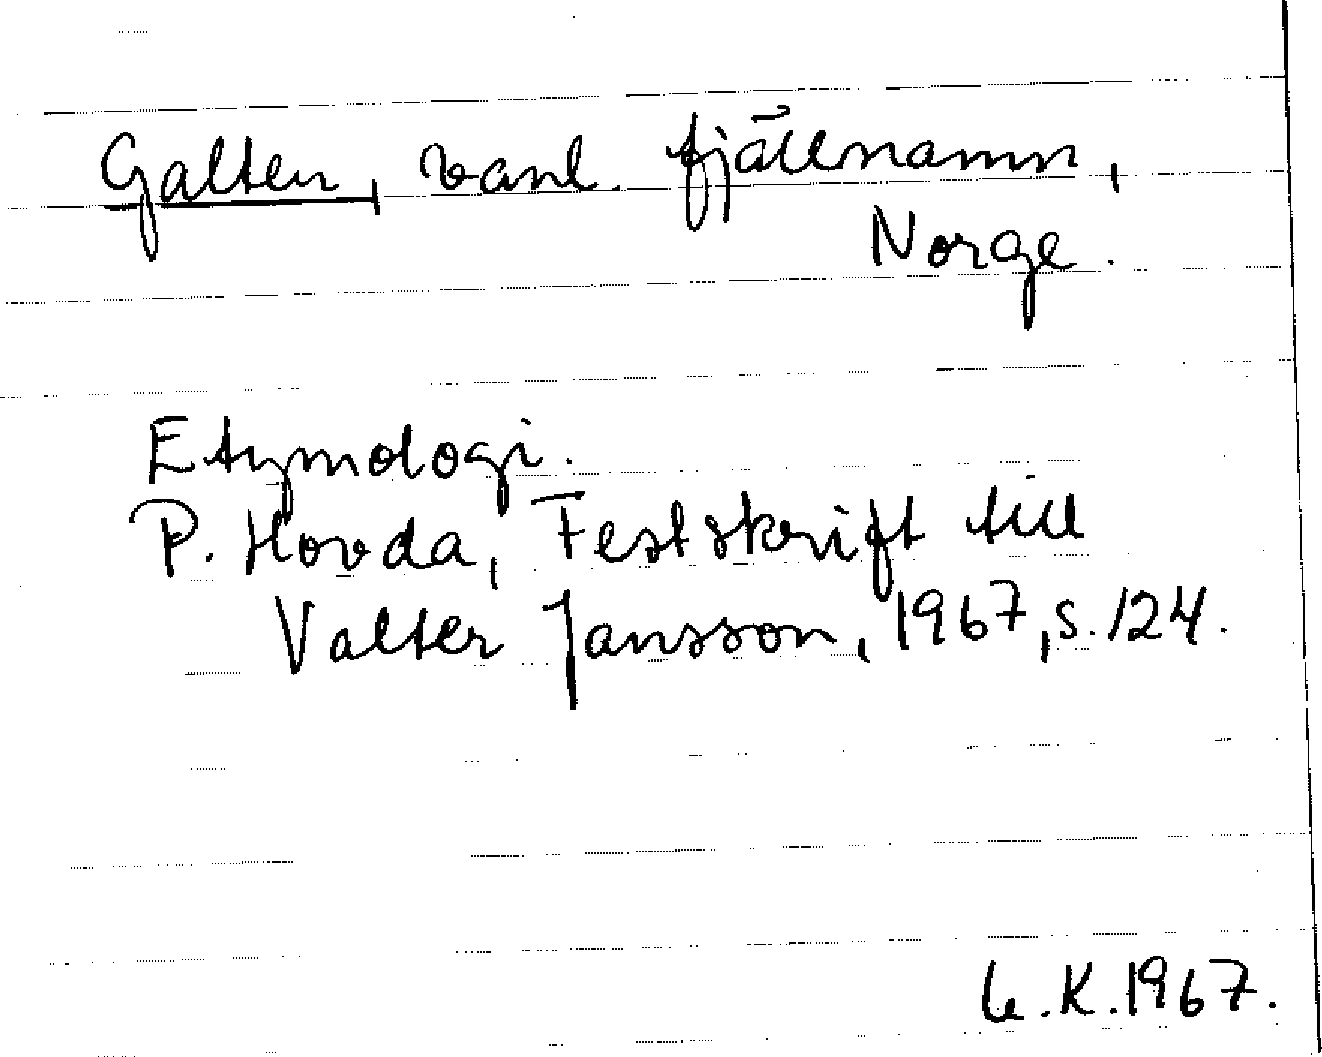 Galten, vanl. fjällnamn,
Norge.
Etymologi.
P. Hovda, Festskrift till
Valter Jansson, 1967, s. 124.
K. 1967.